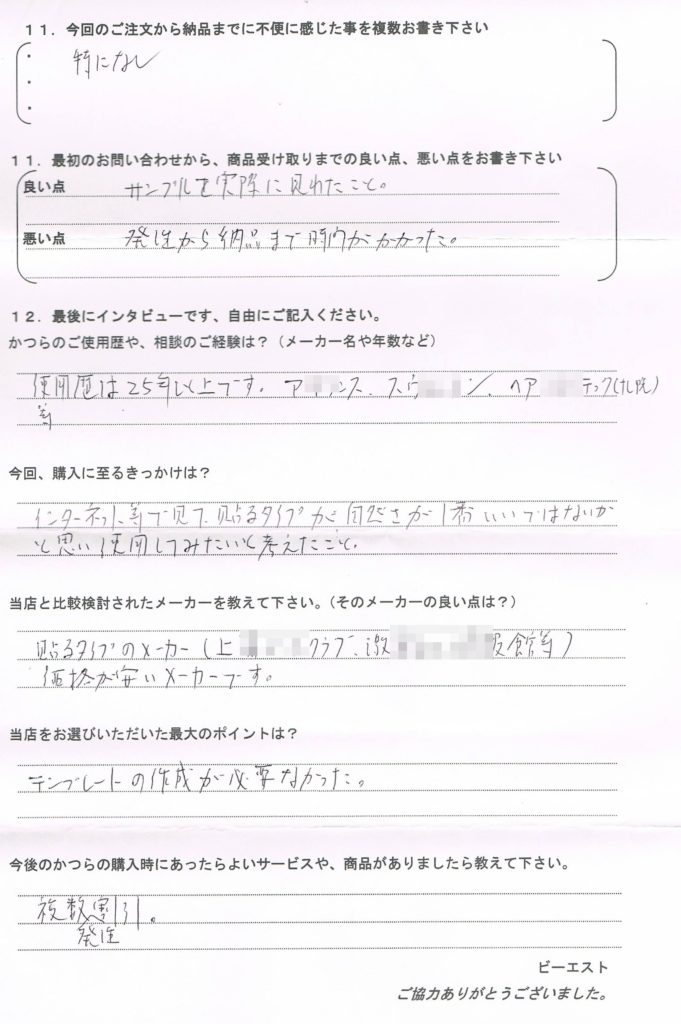 11．今回のご注文から納品までに不便に感じた事を複数お書き下さい
・ 特になし
・
・
11．最初のお問い合わせから、商品受け取りまでの良い点、悪い点をお書き下さい
良い点 サンプルを実際に見れたこと。
悪い点 発注から納品まで時間がかかった。
12．最後にインタビューです、自由にご記入ください。
かつらのご使用歴や、相談のご経験は？（メーカー名や年数など）
使用歴は25年以上です。ア ンス、スヴ ン、ヘア テック(札幌)
等
今回、購入に至るきっかけは？
インターネット等で見て、貼るタイプが、自然さが1番いいではないか
と思い使用してみたいと考えたこと。
当店と比較検討されたメーカーを教えて下さい。（そのメーカーの良い点は？）
貼るタイプのメーカー（上 クラブ、激 館等）
価格が安いメーカーです。
当店をお選びいただいた最大のポイントは？
テンプレートの作成が必要なかった。
今後のかつらの購入時にあったらよいサービスや、商品がありましたら教えて下さい。
複数割引。
発注
ビーエスト
ご協力ありがとうございました。